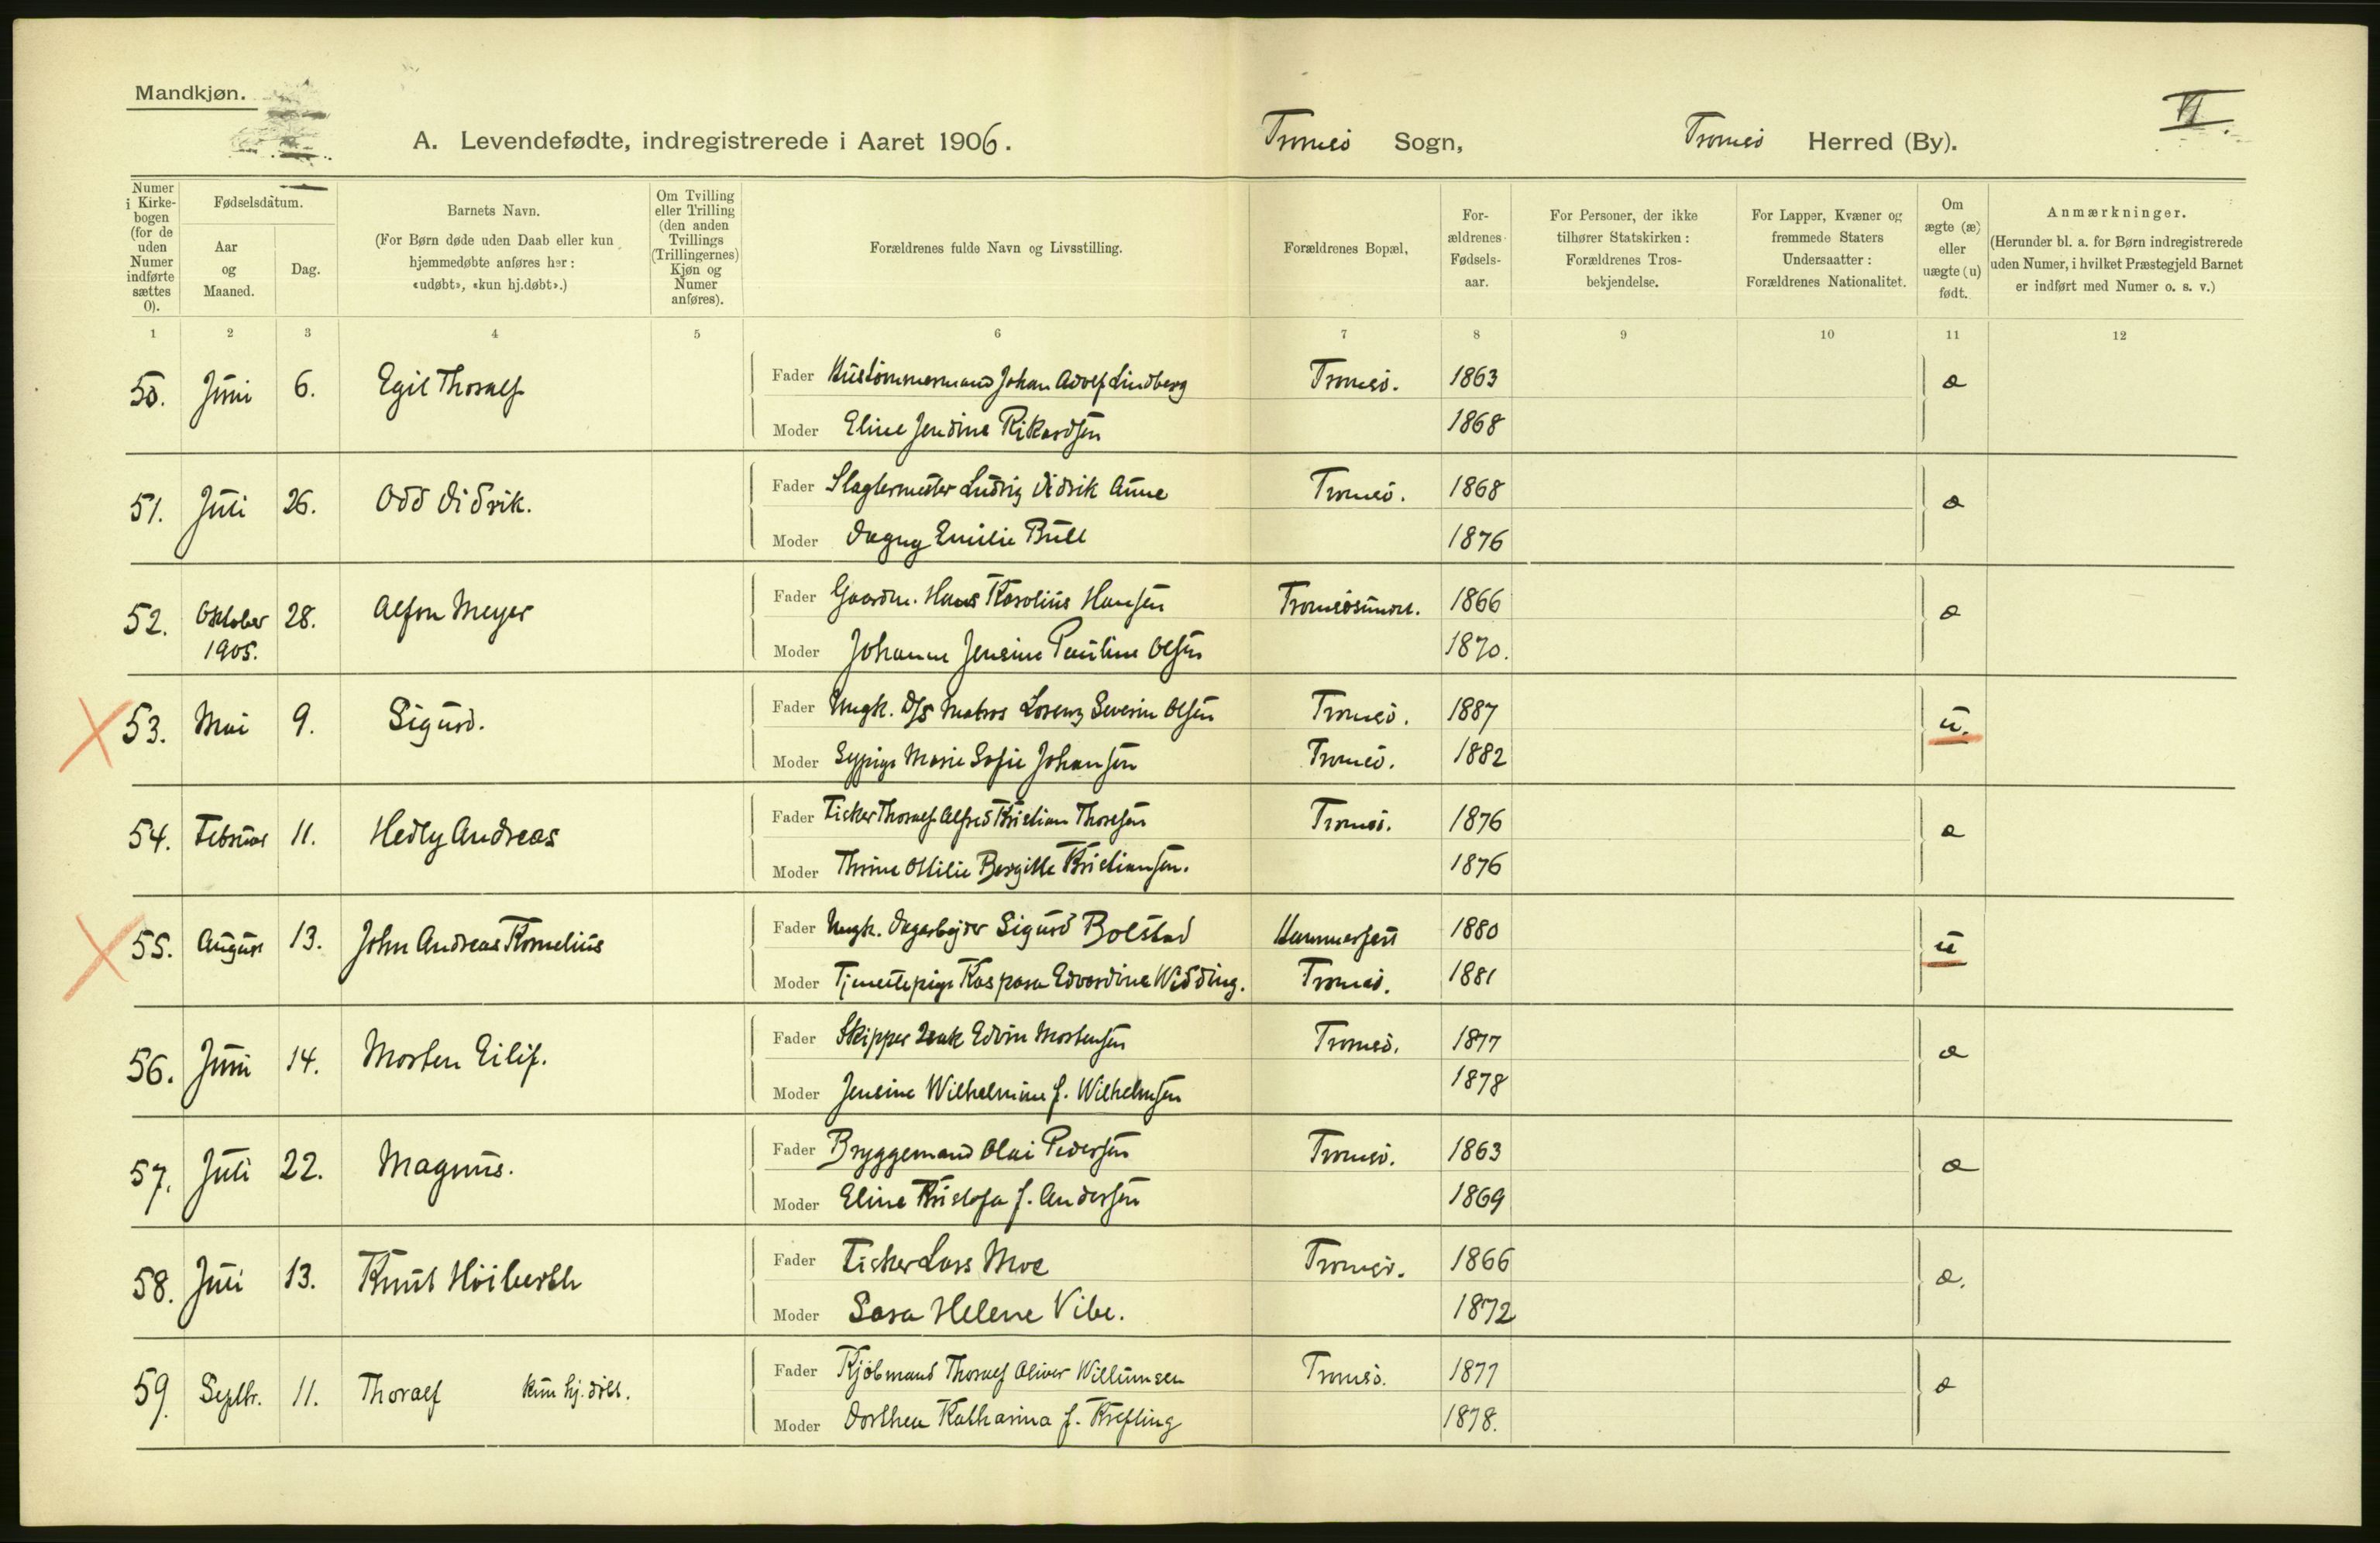 Mandkjøn.
VI.
A. Levendefødte, indregistrerede i Aaret 1906. Tromsö Sogn, Tromsö Herred (By).
Numer i Kirkebogen (for de uden Numer indførte sættes 0).
Fødselsdatum.
Aar og Maaned.
Dag.
Barnets Navn.
(For Børn døde uden Daab eller kun hjemmedøbte anføres her: «udøbt», «kun hj.døbt».)
Om Tvilling eller Trilling (den anden Tvillings (Trillingernes) Kjøn og Numer anføres).
Forældrenes fulde Navn og Livsstilling.
Forældrenes Bopæl,
Forældrenes Fødselsaar.
For Personer, der ikke tilhører Statskirken: Forældrenes Trosbekjendelse.
For Lapper, Kvæner og fremmede Staters Undersaatter: Forældrenes Nationalitet.
Om ægte (æ) eller uægte (u) født.
Anmærkninger.
(Herunder bl. a. for Børn indregistrerede uden Numer, i hvilket Præstegjeld Barnet er indført med Numer o. s. v.)
1 2 3 4 5 6 7 8 9 10 11 12
50. Juni 6. Egil Thoralf Fader Hustömmermand Johan Adolf Lindberg Tromsö. 1863 æ
Moder Eline Jendine Rikardsen 1868
51. Juli 26. Odd Didrik. Fader Slagtermester Ludvig Didrik Aune Tromsö. 1868 æ
Moder Dagny Emilie Bull 1876
52. Oktober 1905. 28. Alfon Meyer Fader Gaardm. Hans Karolius Hansen Tromsösundet. 1866 æ
Moder Johanne Jensine Pauline Olsen 1870.
53. Mai 9. Sigurd. Fader Ungk. D/S Matros Lorenz Severin Olsen Tromsö. 1887 u.
Moder Sypige Marie Sofie Johansen Tromsö. 1882
54. Februar 11. Hedly Andreas Fader Fisker Thoralf Alfred Kristian Thoresen Tromsö. 1876 æ
Moder Thrine Ottilie Bergitte Kristiansen. 1876
55. August 13. John Andreas Kornelius Fader Ungk. Dagarbejder Sigurd Bolstad Hammerfest 1880 u
Moder Tjenestepige Kaspara Edvardine Widding. Tromsö. 1881
56. Juni 14. Morten Eilif. Fader Skipper Isak Edvin Mortensen Tromsö. 1877 æ
Moder Jensine Wilhelmine f. Wilhelmsen 1878
57. Juli 22. Magnus. Fader Bryggemand Olai Pedersen Tromsö. 1863 æ
Moder Eline Kristofa f. Andersen 1869
58. Juli 13. Knut Höiberth Fader Fisker Lars Moe Tromsö. 1866 æ.
Moder Sara Helene Vibe. 1872
59. Septbr. 11. Thoralf kun hj.döbt. Fader Kjöbmand Thoralf Oliver Willumsen Tromsö. 1877 æ
Moder Dorthea Katharina f. Krefting 1878.